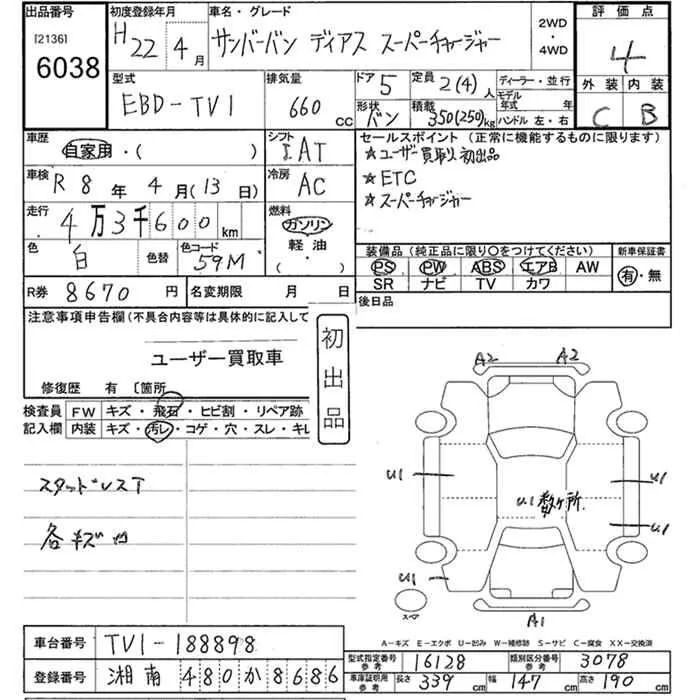 出品番号
[2136]
6038
初度登録年月
H22年4月
車名・グレード
サンバーバン ディアス スーパーチャージャー
2WD
・
4WD
評価点
4
外装 内装
C B
型式
EBD-TV1
排気量
660 cc
ドア 5
定員 2(4)人
ディーラー・並行
モデル年式 年
形状 バン
積載 350(250)kg
ハンドル 左・右
車歴
自家用・( )
シフト
I AT
セールスポイント (正常に機能するものに限ります)
☆ユーザー買取り初出品
☆ETC
☆スーパーチャージャー
車検
R8年4月(13日)
冷房
AC
走行
4万3千600km
燃料
ガソリン
軽油
( )
色
白
色替
色コード
59M
装備品 (純正品に限り○をつけてください)
新車保証書
PS PW ABS エアB AW
SR ナビ TV カワ
有・無
R券 8670円
名変期限 月 日
後日品
注意事項申告欄(不具合内容等は具体的に記入して
ユーザー買取車
初出品
修復歴 有 〔箇所
検査員記入欄
FW キズ・飛石・ヒビ割・リペア跡
内装 キズ・汚レ・コゲ・穴・スレ・キレ
スタッドレスT
各キズ凹
A2 A2
U1 U1
U1数ヶ所
U1
U1
スペア
A1
A-キズ E-エクボ U-凹み W-補修跡 S-サビ C-腐食 XX-交換済
車台番号 TV1-188898
登録番号 湘南480か8686
型式指定番号 参考 16128
類別区分番号 参考 3078
車庫証明用 参考 長さ 339cm 幅 147cm 高さ 190cm